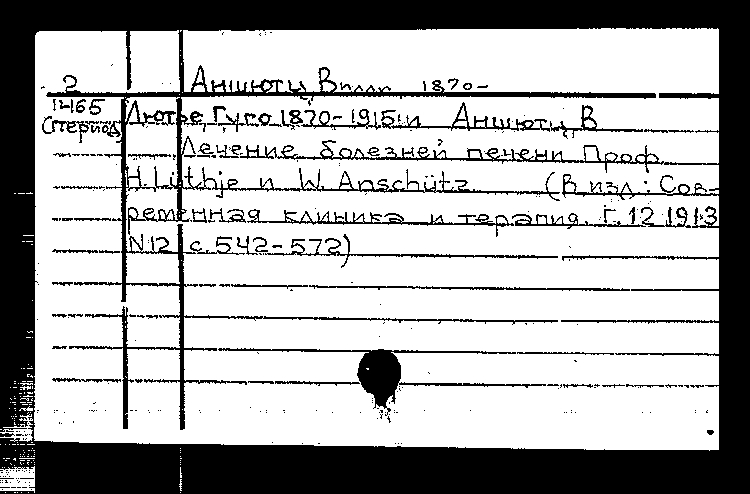 2 Аншютц, Вилли 1870-
1465 Лютье, Гуго 1870-1915 и Аншютц, В
(период)
Лечение болезней печени Проф
H. Lüthje и W. Anschütz (В изд.: Сов-
ременная клиника и терапия. Г. 12 1913
N12 с. 542-572)